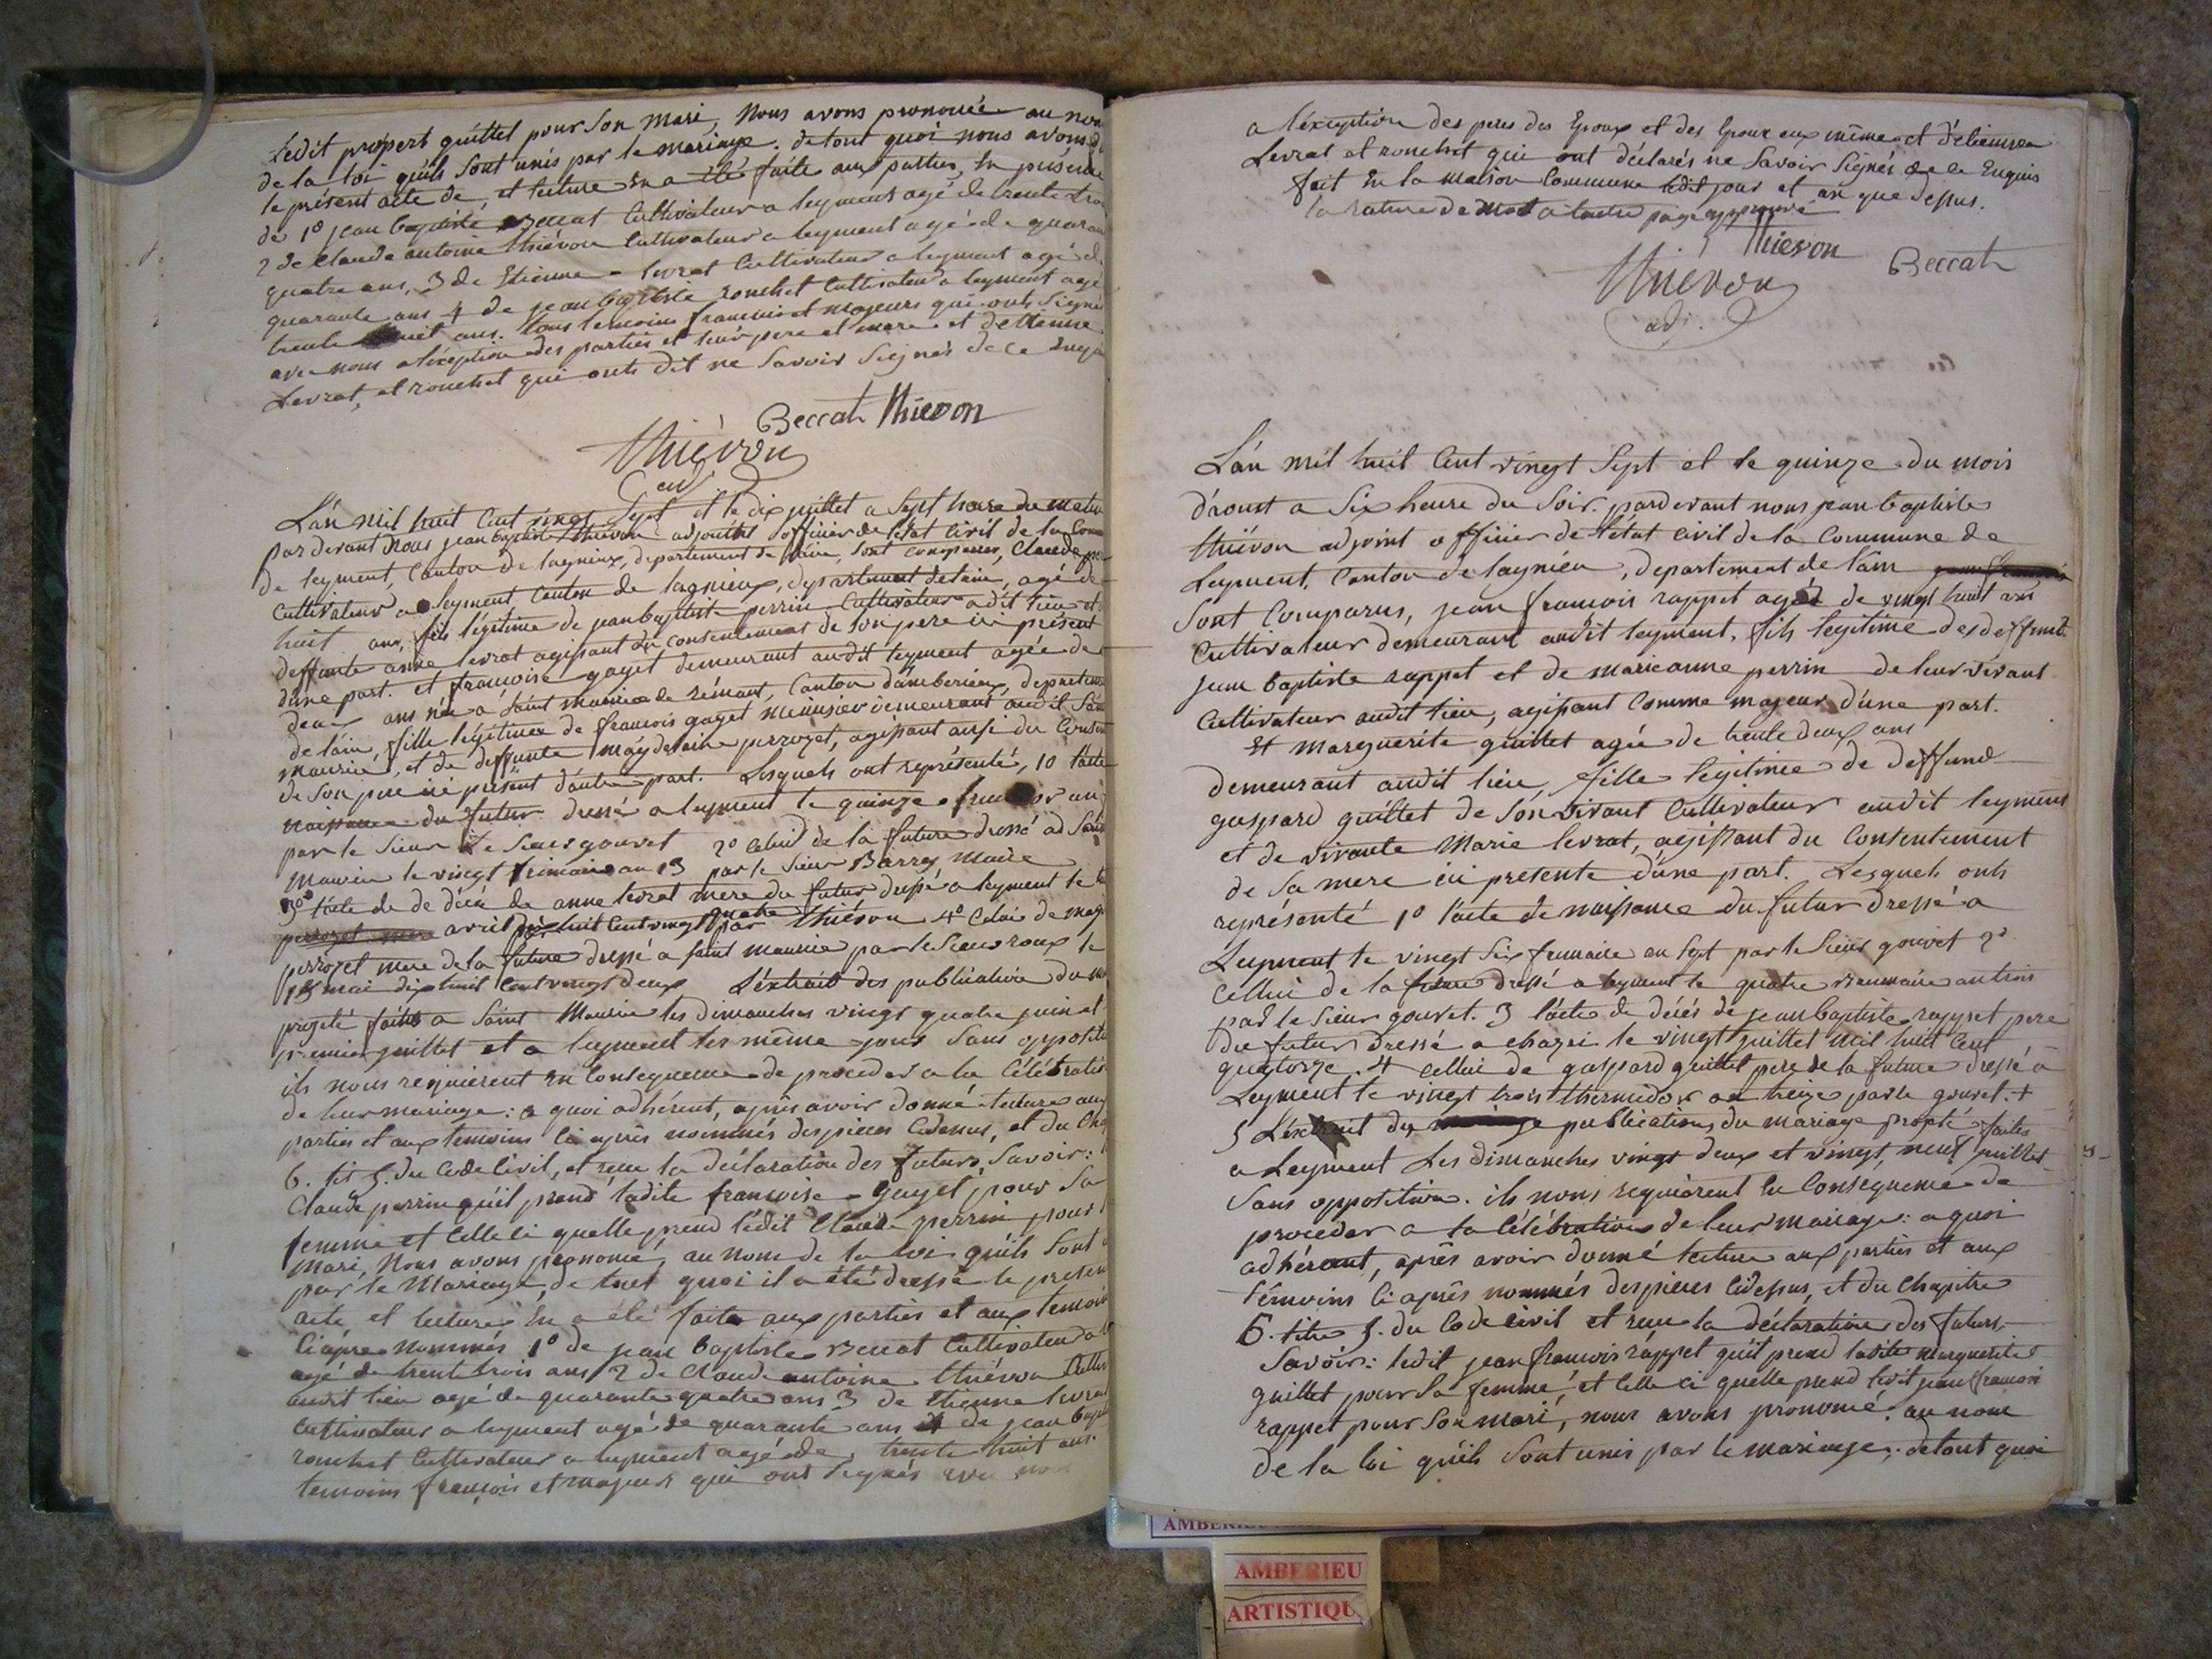 Ledit propert guillet pour son mari, Nous avons prononcé au nom
de la loi qu'ils sont unis par le mariage. de tout quoi nous avons
le présent acte de, et lecture en a été faite aux parties, en presence
de 1° jean baptiste Beccat Cultivateur a leyment agé de trente trois
2 de Claude antoine thiévon Cultivateur a leyment agé de quarante
quatre ans, 3 de Etienne levrat Cultivateur a leyment agé de
quarante ans 4 de jean baptiste ronchet Cultivateur a leyment agé
trente huit ans. tous temoins francois et majeurs qui ont signés
avec nous a léxception des parties et leur pere et mere et d'etienne
Levrat, et ronchet qui onts dit ne Savoir Signés de ce Enquis
Beccat thievon
thiévon
adj.
L'an mil huit Cent vingt Sept et le dix juillet a Sept heure du matin
par devant Nous jean baptiste thiévon adjoint officier de létat Civil de la Commune
de leyment, Canton de lagnieux, departement de l'ain, Sont comparus, Claude perrin
Cultivateur a leyment Canton de lagnieux, departement de l'ain, agé de
huit ans, fils légitime de jean baptiste perrin Cultivateur audit lieu et
deffunte anne levrat agissant du consentement de son pere ici présent
d'une part. et francoise gayet demeurant audit leyment agée de
deux ans née a Saint maurice de rémant, Canton d'amberieux, departement
de l'ain, fille légitime de francois gayet Menusier demeurant audit Saint
maurice, et de deffunte magdelaine perrozet, agissant aussi du Consentement
de Son pere ici présent d'autre part. Lesquels ont représenté, 1° l'acte
naissance du futur dressé a leyment le quinze an
par le Sieur gouvet 2° Celui de la future dressé ad Saint
Maurice le vingt frimaire an 13 par le Sieur Barrey Maire
3° l'acte de de décès de anne levrat mere du futur dressé a leyment le
avril dix huit Cent vingt quatre par thiévon 4° Celui de magdelaine
perrozet mere de la future dressé a saint maurice par le Sieur roux le
15 mai dix huit Cent vingt deux L'éxtrait des publication du mariage
projeté faites a Saint Maurice les dimanches vingt quatre juin et
premier juillet et a leyment les même jours Sans opposition
ils nous requièrent en Consequence de proceder a la Célébration
de leur mariage: a quoi adhérent, après avoir donné lecture aux
parties et aux temoins ci après nommés des pieces Cidessus, et du Chapitre
6. tit 5. du Code Civil, et recu la déclaration des futurs, Savoir:
Claude perrin qu'il prend ladite francoise gayet pour Sa
femme et Celle ci quelle prend ledit Claude perrin pour
mari, Nous avons prononcé, au nom de la loi qu'ils Sont
par le Mariage, de tout quoi il a été dressé le présent
acte, et lecture En a été faite aux parties et aux temoins
Ciaprès nommés 1° de jean baptiste Beccat Cultivateur
agé de trente trois ans 2 de Claude antoine thiévon Cultiv
audit lieu agé de quarante quatre ans 3 de Etienne levrat
Cultivateur a leyment agé de quarante ans 4 de jean baptiste
ronchet Cultivateur a leyment agé de trente huit ans
temoins francois et majeurs qui ont Signés avec nous
a léxception des peres des Epoux et des Epoux eux même et d'étienne
Levrat et ronchet qui ont déclarés ne Savoir Signés de ce Enquis
fait En la maison Commune ledit jour et an que dessus.
la rature de mot a lautre page approuvé
thiévon Beccat
thiévon
adj.
L'an mil huit Cent vingt Sept et le quinze du mois
d'aoust a Six heure du Soir. pardevant nous jean baptiste
thiévon adjoint officier de l'état Civil de la Commune de
Leyment, Canton de lagnieu, departement de l'ain
Sont Comparus, jean francois rappet agé de vingt huit ans
Cultivateur demeurant audit leyment, fils legitime de deffunt
jean baptiste rappet et de marieanne perrin de leur vivant
Cultivateur audit lieu, agissant Comme majeur d'une part.
Et Marguerite guillet agée de trente deux ans
demeurant audit lieu, fille legitime de deffund
gaspard guillet de Son vivant Cultivateur audit leyment
et de vivante Marie levrat, agissant du Consentement
de Sa mere ici presente d'une part. Lesquels onts
représenté 1° l'acte de naissance du futur dressé a
Leyment le vingt Six frimaire an Sept par le Sieur gouvet 2°
Cellui de la future dressé a leyment le quatre Brumaire an trois
par le Sieur gouvet. 3 l'acte de décès de jean baptiste rappet pere
du futur dressé a chazei le vingt juillet mil huit Cent
quatorze. 4 Cellui de gaspard guillet pere de la future dressé a
Leyment le vingt trois thermidor an treize par le gouvet. +
5 L'éxtrait des publications du mariage projeté faites
a Leyment Les dimanches vingt deux et vingt, neuf juillet
Sans opposition. ils nous requièrent En Consequence de
proceder a la Célébration de leur mariage: a quoi
adhérant, après avoir donné lecture aux parties et aux
témoins ci après nommés des pieces cidessus, et du Chapitre
6. titre 5. du Code Civil et recu la déclaration des futurs,
Savoir: ledit jean francois rappet qu'il prend ladite marguerite
guillet pour Sa femme, et Celle Ci quelle prend ledit jean francois
rappet pour Son mari, nous avons prononcé, au nom
de la loi qu'ils Sont unis par le mariage; de tout quoi
AMBERIEU
ARTISTIQU